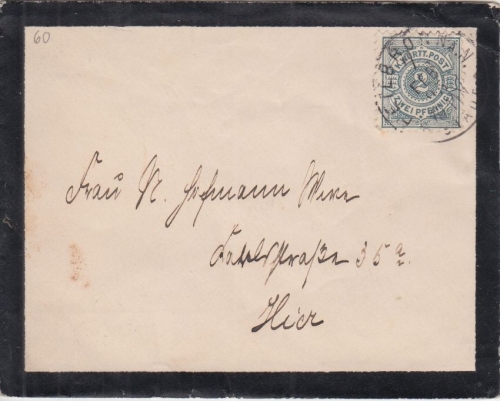 60
K. WÜRTT. POST
2
ZWEI PFENNIG
HEILBRONN
Frau N. Hofmann Wwe
straße 35 a.
Hier